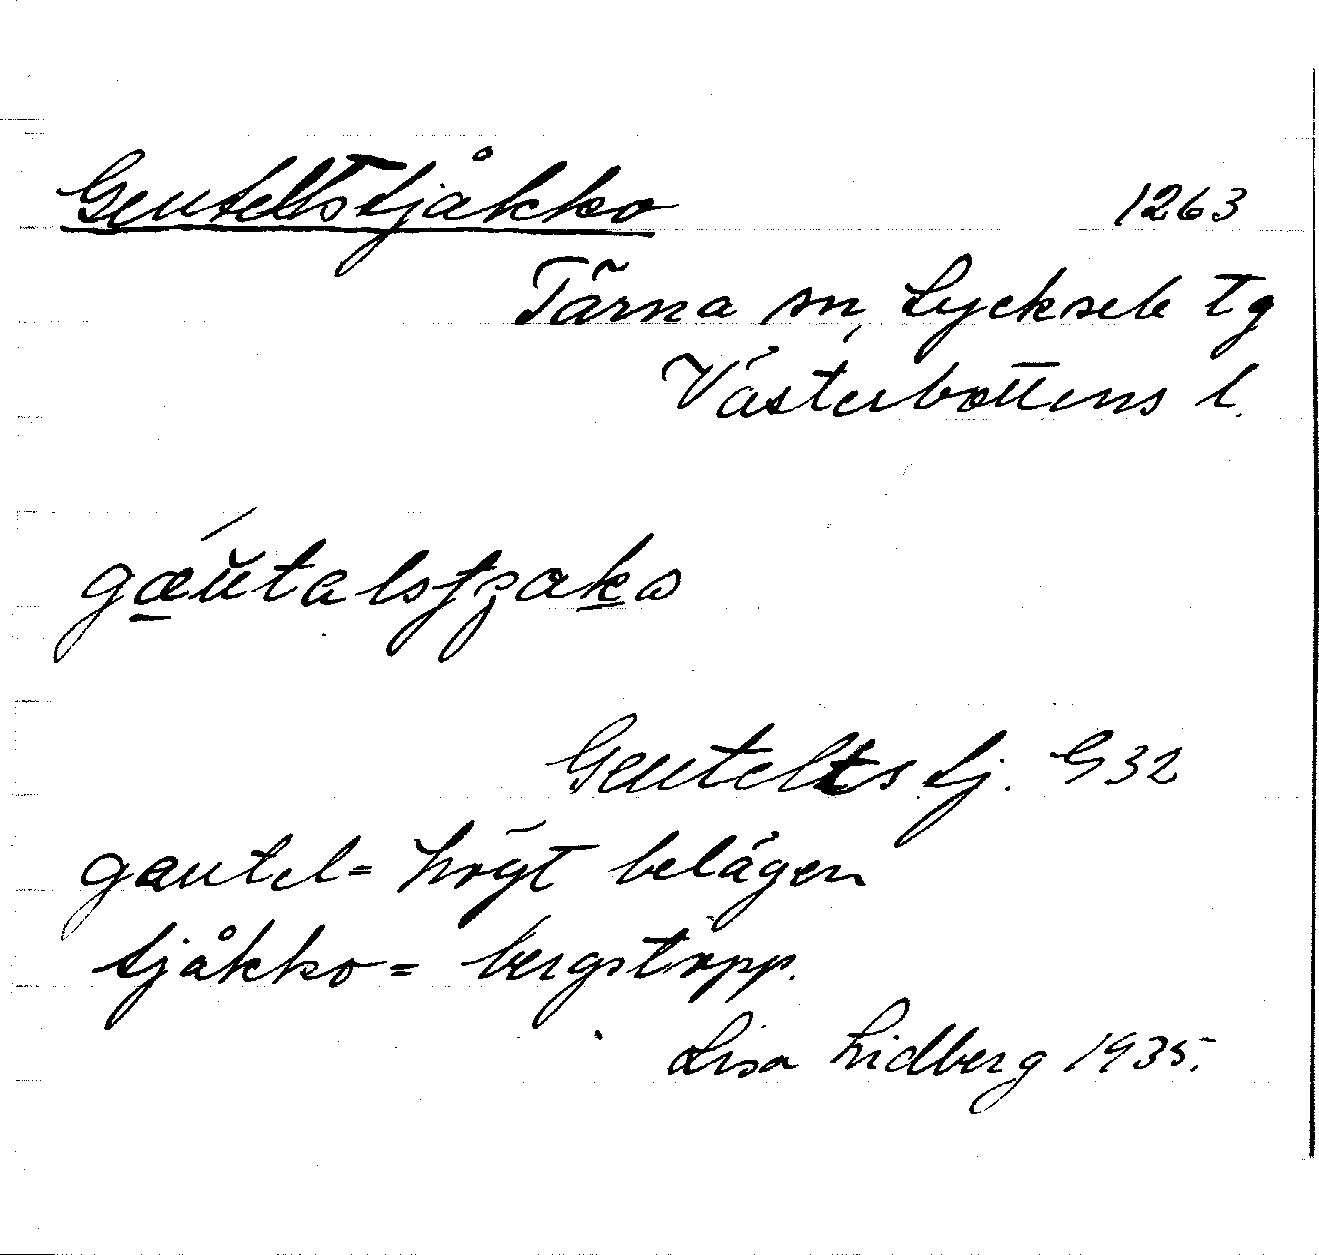 Geuteltstjåkko 1263
Tärna sn, Lycksele tg
Västerbottens l.
Geutelts tj. G32
gautel = högt belägen
tjåkko = bergstopp.
Lisa Lidberg 1935.